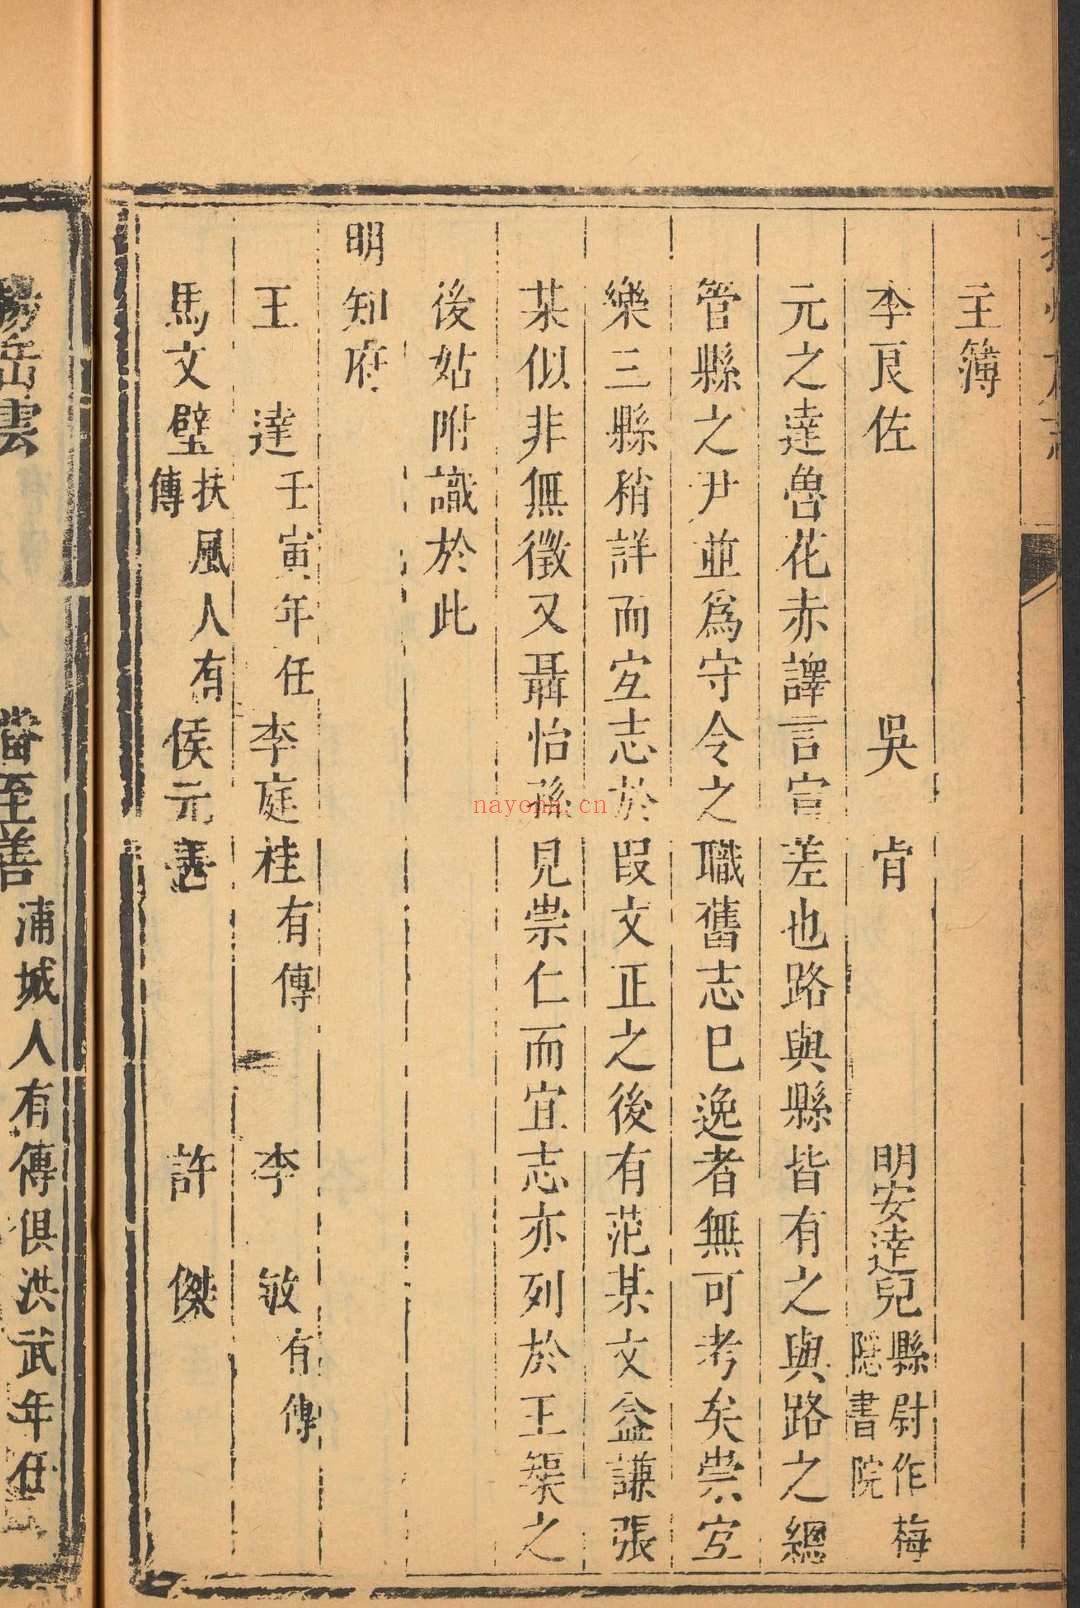 主簿
李良佐 吳肯 明安達兒縣尉作梅隱書院
元之達魯花赤譯言宣差也路與縣皆有之與路之總
管縣之尹並爲守令之職舊志已逸者無可考矣崇宜
樂三縣稍詳而宜志於叚文正之後有范某文益謙張
某似非無徵又聶怡孫見崇仁而宜志亦列於王榘之
後姑附識於此
明知府
王達壬寅年任 李庭桂有傳 李敏有傳
馬文璧扶風人有傳 侯元善 許傑
楊岳雲
潘至善浦城人有傳俱洪武年任
nayona.cn